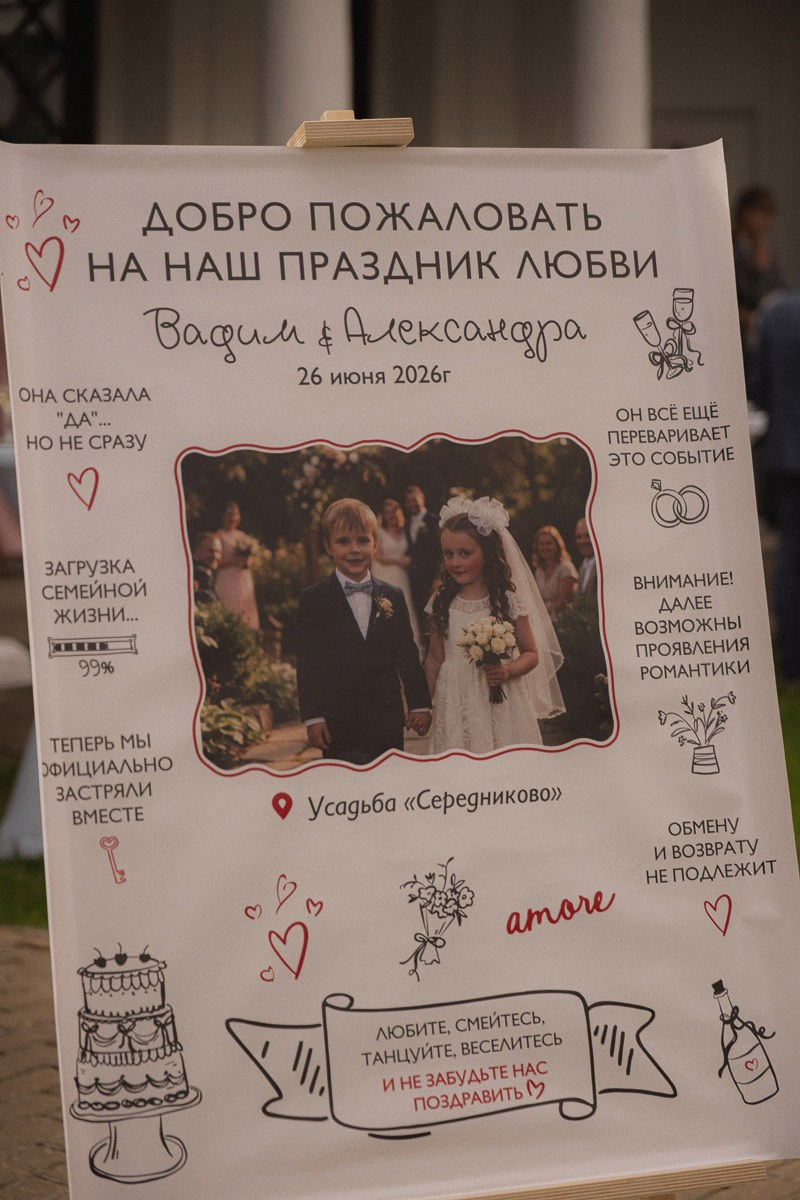 ДОБРО ПОЖАЛОВАТЬ
НА НАШ ПРАЗДНИК ЛЮБВИ
Вадим & Александра
26 июня 2026г
ОНА СКАЗАЛА
"ДА"...
НО НЕ СРАЗУ
ОН ВСЁ ЕЩЁ
ПЕРЕВАРИВАЕТ
ЭТО СОБЫТИЕ
ЗАГРУЗКА
СЕМЕЙНОЙ
ЖИЗНИ...
99%
ВНИМАНИЕ!
ДАЛЕЕ
ВОЗМОЖНЫ
ПРОЯВЛЕНИЯ
РОМАНТИКИ
ТЕПЕРЬ МЫ
ОФИЦИАЛЬНО
ЗАСТРЯЛИ
ВМЕСТЕ
Усадьба «Середниково»
ОБМЕНУ
И ВОЗВРАТУ
НЕ ПОДЛЕЖИТ
amore
ЛЮБИТЕ, СМЕЙТЕСЬ,
ТАНЦУЙТЕ, ВЕСЕЛИТЕСЬ
И НЕ ЗАБУДЬТЕ НАС
ПОЗДРАВИТЬ